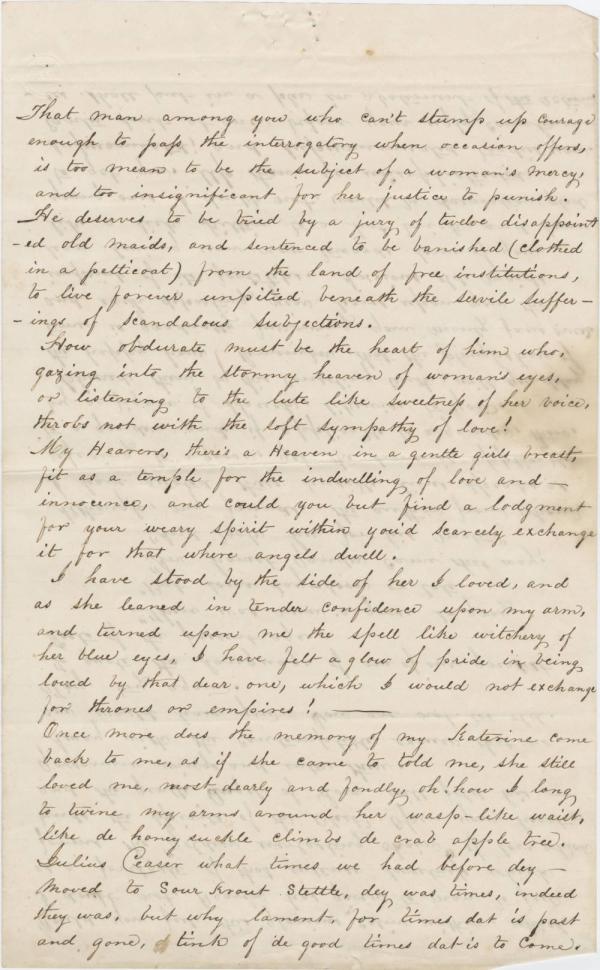 That man among you who can't stump up courage
enough to pass the interrogatory when occasion offers,
is too mean to be the subject of a woman's mercy,
and too insignificant for her justice to punish.
He deserves to be tried by a jury of twelve disappoint
-ed old maids, and sentenced to be banished (clothed
in a petticoat) from the land of free institutions,
to live forever unpitied beneath the servile suffer-
-ings of scandalous subjections.
How obdurate must be the heart of him who,
gazing into the stormy heaven of woman's eyes,
or listening to the lute like sweetness of her voice,
throbs not with the soft sympathy of love!
My Hearers, there's a Heaven in a gentle girls breast,
fit as a temple for the indwelling of love and —
innocence, and could you but find a lodgment
for your weary spirit within you'd scarcely exchange
it for that where angels dwell.
I have stood by the side of her I loved, and
as she leaned in tender confidence upon my arm,
and turned upon me the spell like witchery of
her blue eyes, I have felt a glow of pride in being
loved by that dear one, which I would not exchange
for thrones or empires! —
Once more does the memory of my Katerine come
back to me, as if she came to told me, she still
loved me, most dearly and fondly, oh! how I long
to twine my arms around her wasp-like waist,
like de honey suckle climbs de crab apple tree.
Julius Ceaser what times we had before dey —
moved to Sour Krout Stettle, dey was times, indeed
they was, but why lament, for times dat is past
and gone, tink of de good times dat is to come.